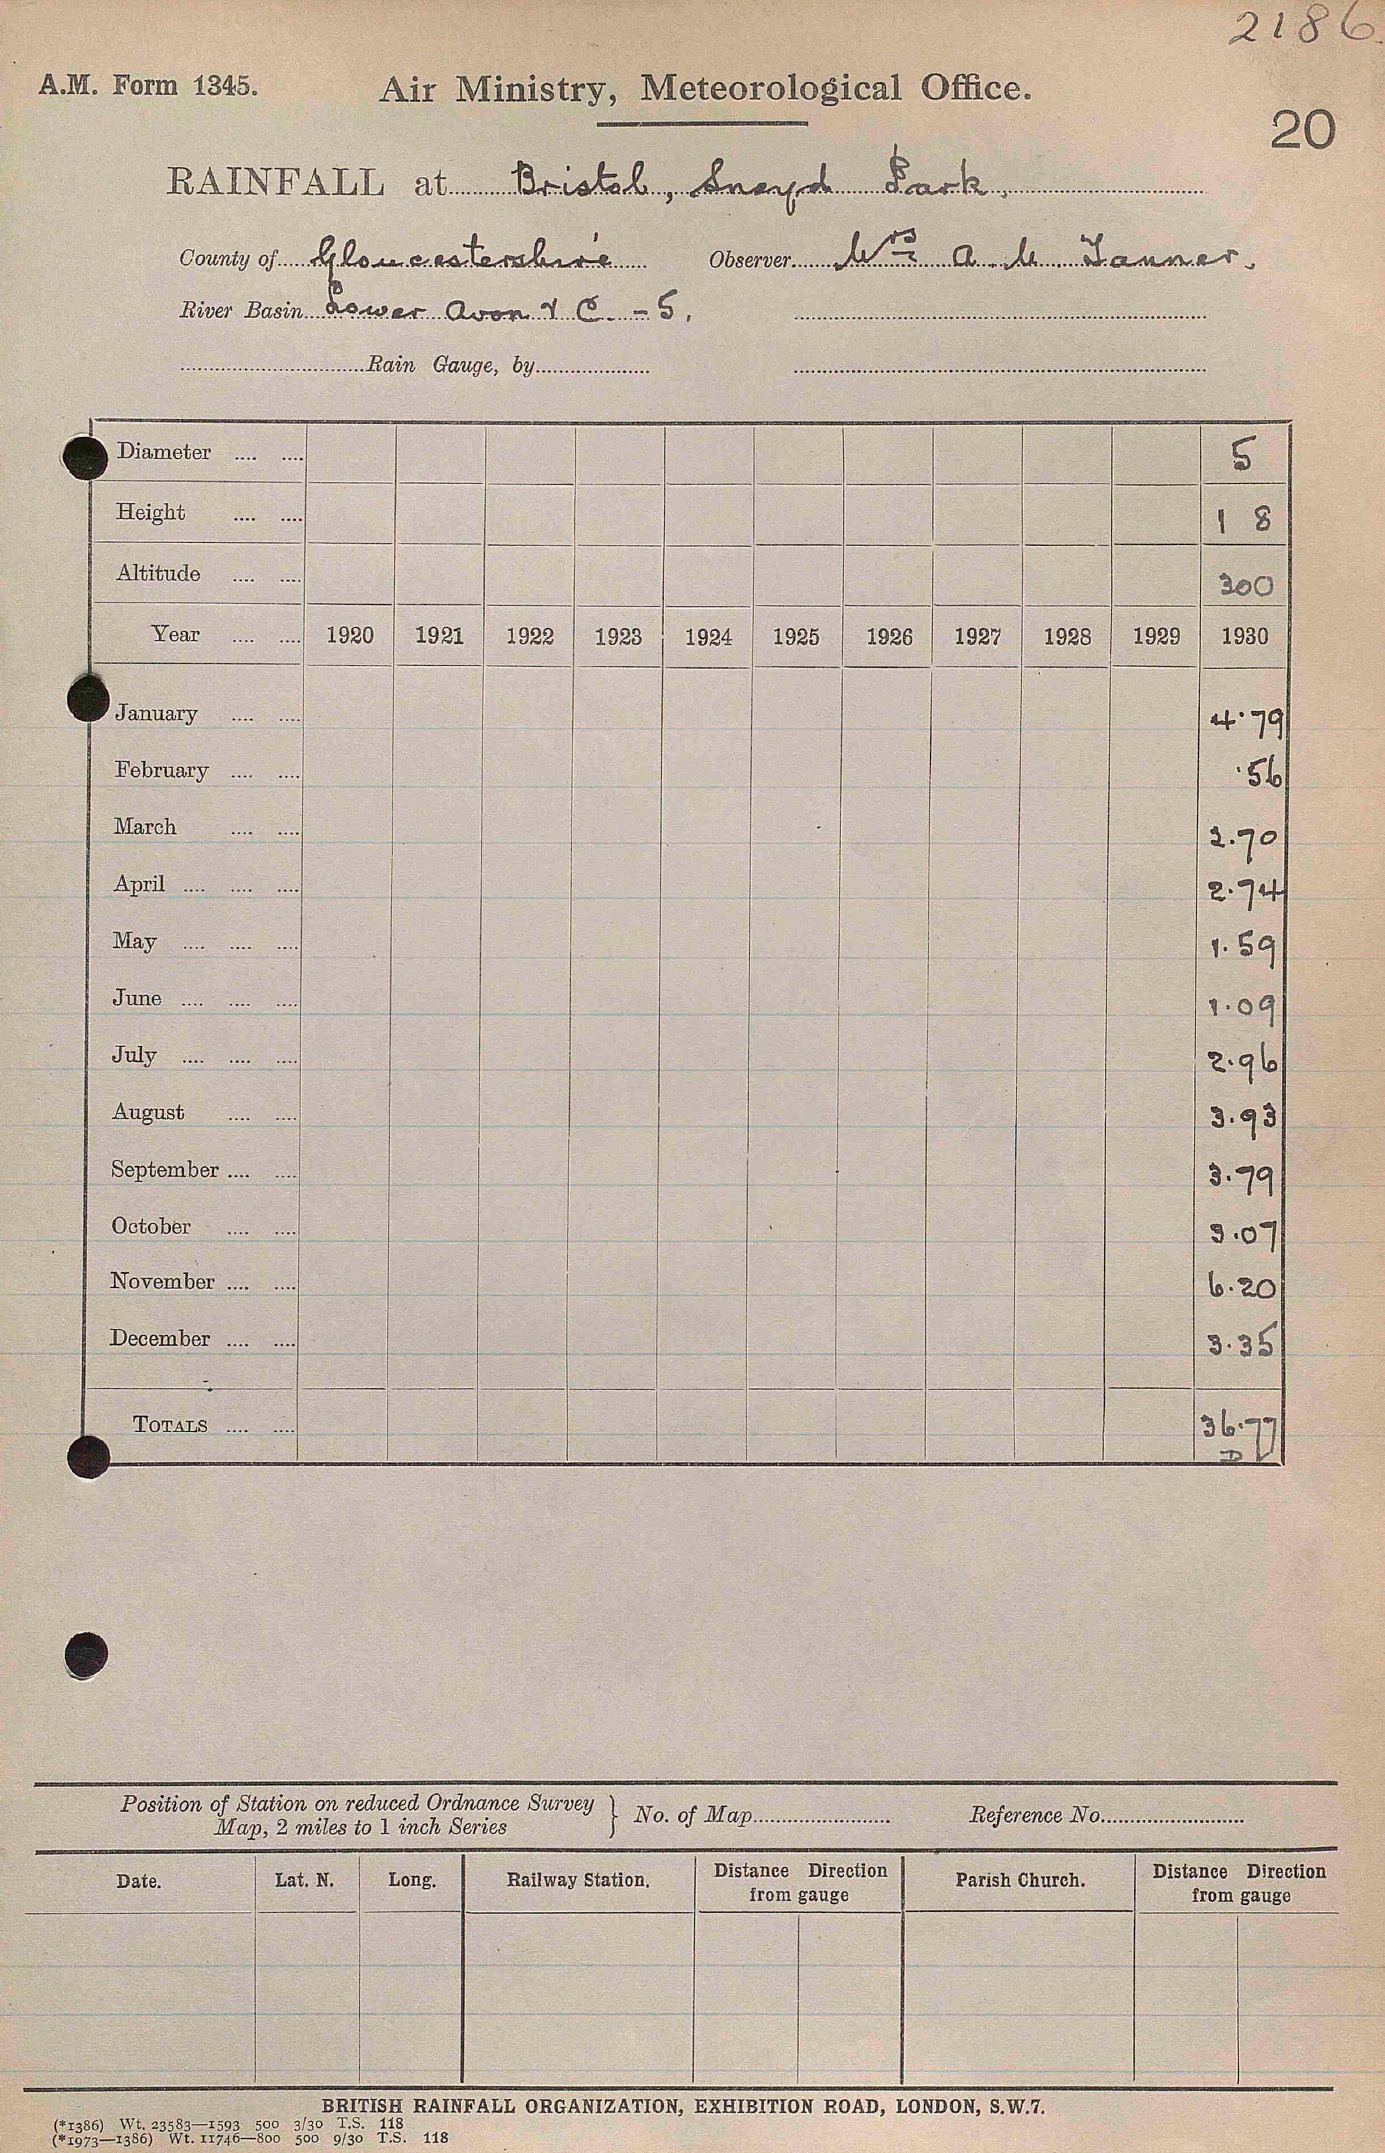 2186.
A.M. Form 1345. Air Ministry, Meteorological Office.
20
RAINFALL at Bristol, Sneyd Park.
County of Gloucestershire Observer Mrs A. M. Tanner.
River Basin Lower Avon & C. - 5.
Rain Gauge, by
Diameter 5
Height 1 8
Altitude 300
Year 1920 1921 1922 1923 1924 1925 1926 1927 1928 1929 1930
January 4.79
February .56
March 2.70
April 2.74
May 1.59
June 1.09
July 2.96
August 3.93
September 3.79
October 3.07
November 6.20
December 3.35
TOTALS 36.77
D
Position of Station on reduced Ordnance Survey
Map, 2 miles to 1 inch Series } No. of Map Reference No.
Date. Lat. N. Long. Railway Station. Distance Direction from gauge Parish Church. Distance Direction from gauge
BRITISH RAINFALL ORGANIZATION, EXHIBITION ROAD, LONDON, S.W.7.
(*1386) Wt. 23583—1593 500 3/30 T.S. 118
(*1973—1386) Wt. 11746—800 500 9/30 T.S. 118